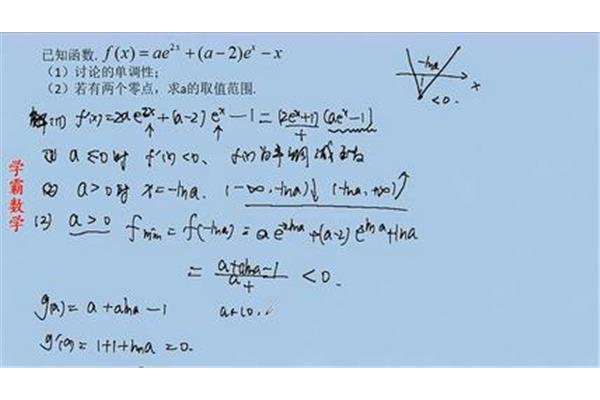 已知函数. f(x)=ae^{2x}+(a-2)e^x-x
（1）讨论的单调性；
（2）若有两个零点，求a的取值范围.
解:(1) f'(x)=2ae^{2x}+(a-2)e^x-1=(2e^x+1)(ae^x-1)
+
① a≤0时 f'(x)<0. f(x)为单调减函数
② a>0时 x=-lna. (-∞,-lna)↓ (-lna,+∞)↑
(2) a>0 f_{min}=f(-lna)=ae^{-2lna}+(a-2)e^{-lna}+lna
=\frac{a+alna-1}{a} <0.
+
g(a)=a+alna-1
g'(a)=1+1+lna=0.
-lna
x
<0.
学霸数学